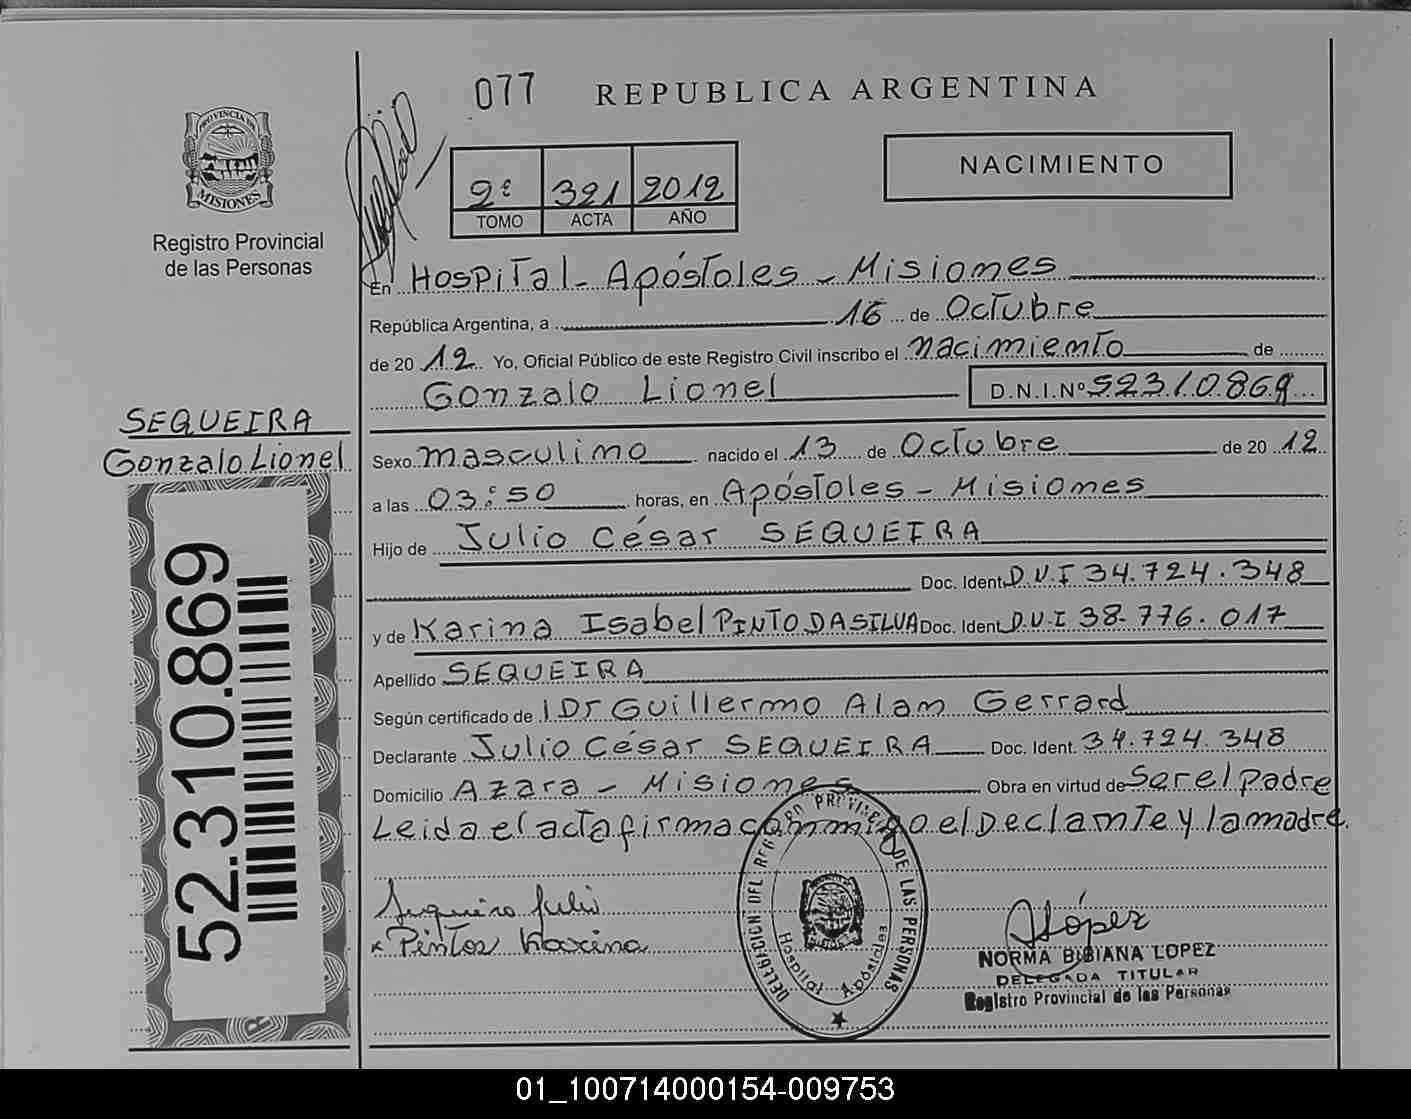 077 REPUBLICA ARGENTINA
PROVINCIA DE
MISIONES
Registro Provincial
de las Personas
2ᵉ 321 2012
TOMO ACTA AÑO
NACIMIENTO
En Hospital - Apóstoles - Misiones
República Argentina, a 16 de Octubre
de 20 12 Yo, Oficial Público de este Registro Civil inscribo el nacimiento de
Gonzalo Lionel D.N.I.Nº 52310869
SEQUEIRA
Gonzalo Lionel
Sexo masculino nacido el 13 de Octubre de 20 12
a las 03:50 horas, en Apóstoles - Misiones
Hijo de Julio César SEQUEIRA
Doc. Ident. D.N.I 34.724.348
y de Karina Isabel PINTO DASILVA Doc. Ident. D.N.I 38.776.017
Apellido SEQUEIRA
Según certificado de 1 Dr Guillermo Alan Gerrard
Declarante Julio César SEQUEIRA Doc. Ident. 34.724.348
Domicilio Azara - Misiones Obra en virtud de Ser el Padre
Leida el acta firma conmigo el Declante y la madre.
52.310.869
Sequeira Julio
x Pintos Karina
DELEGACION DEL REGISTRO PROVINCIAL DE LAS PERSONAS
Hospital Apóstoles
NLópez
NORMA BIBIANA LOPEZ
DELEGADA TITULAR
Registro Provincial de las Personas
01_100714000154-009753